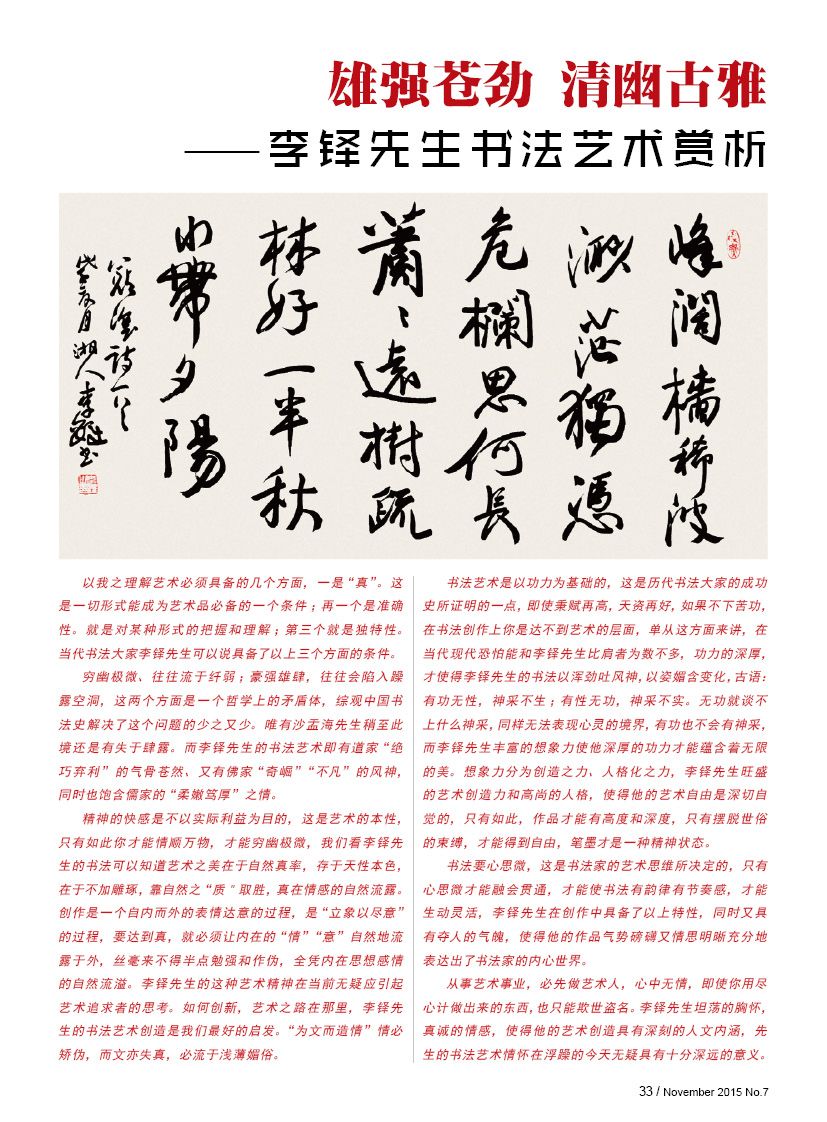 雄强苍劲 清幽古雅
——李铎先生书法艺术赏析
峰闊檣稀波
渺茫獨憑
危欄思何長
蕭〻遠樹疏
林好一半秋
山帶夕陽
寇準詩一首
月湘人李鐸书
以我之理解艺术必须具备的几个方面，一是“真”。这
是一切形式能成为艺术品必备的一个条件；再一个是准确
性。就是对某种形式的把握和理解；第三个就是独特性。
当代书法大家李铎先生可以说具备了以上三个方面的条件。
穷幽极微、往往流于纤弱；豪强雄肆，往往会陷入躁
露空洞，这两个方面是一个哲学上的矛盾体，综观中国书
法史解决了这个问题的少之又少。唯有沙孟海先生稍至此
境还是有失于肆露。而李铎先生的书法艺术即有道家“绝
巧弃利”的气骨苍然、又有佛家“奇崛”“不凡”的风神，
同时也饱含儒家的“柔嫩笃厚”之情。
精神的快感是不以实际利益为目的，这是艺术的本性，
只有如此你才能情顺万物，才能穷幽极微，我们看李铎先
生的书法可以知道艺术之美在于自然真率，存于天性本色，
在于不加雕琢，靠自然之“质＂取胜，真在情感的自然流露。
创作是一个自内而外的表情达意的过程，是“立象以尽意”
的过程，要达到真，就必须让内在的“情”“意”自然地流
露于外，丝毫来不得半点勉强和作伪，全凭内在思想感情
的自然流溢。李铎先生的这种艺术精神在当前无疑应引起
艺术追求者的思考。如何创新，艺术之路在那里，李铎先
生的书法艺术创造是我们最好的启发。“为文而造情”情必
矫伪，而文亦失真，必流于浅薄媚俗。
书法艺术是以功力为基础的，这是历代书法大家的成功
史所证明的一点，即使秉赋再高，天资再好，如果不下苦功，
在书法创作上你是达不到艺术的层面，单从这方面来讲，在
当代现代恐怕能和李铎先生比肩者为数不多，功力的深厚，
才使得李铎先生的书法以浑劲吐风神，以姿媚含变化，古语：
有功无性，神采不生；有性无功，神采不实。无功就谈不
上什么神采，同样无法表现心灵的境界，有功也不会有神采，
而李铎先生丰富的想象力使他深厚的功力才能蕴含着无限
的美。想象力分为创造之力、人格化之力，李铎先生旺盛
的艺术创造力和高尚的人格，使得他的艺术自由是深切自
觉的，只有如此，作品才能有高度和深度，只有摆脱世俗
的束缚，才能得到自由，笔墨才是一种精神状态。
书法要心思微，这是书法家的艺术思维所决定的，只有
心思微才能融会贯通，才能使书法有韵律有节奏感，才能
生动灵活，李铎先生在创作中具备了以上特性，同时又具
有夺人的气魄，使得他的作品气势磅礴又情思明晰充分地
表达出了书法家的内心世界。
从事艺术事业，必先做艺术人，心中无情，即使你用尽
心计做出来的东西，也只能欺世盗名。李铎先生坦荡的胸怀，
真诚的情感，使得他的艺术创造具有深刻的人文内涵，先
生的书法艺术情怀在浮躁的今天无疑具有十分深远的意义。
33 / November 2015 No.7